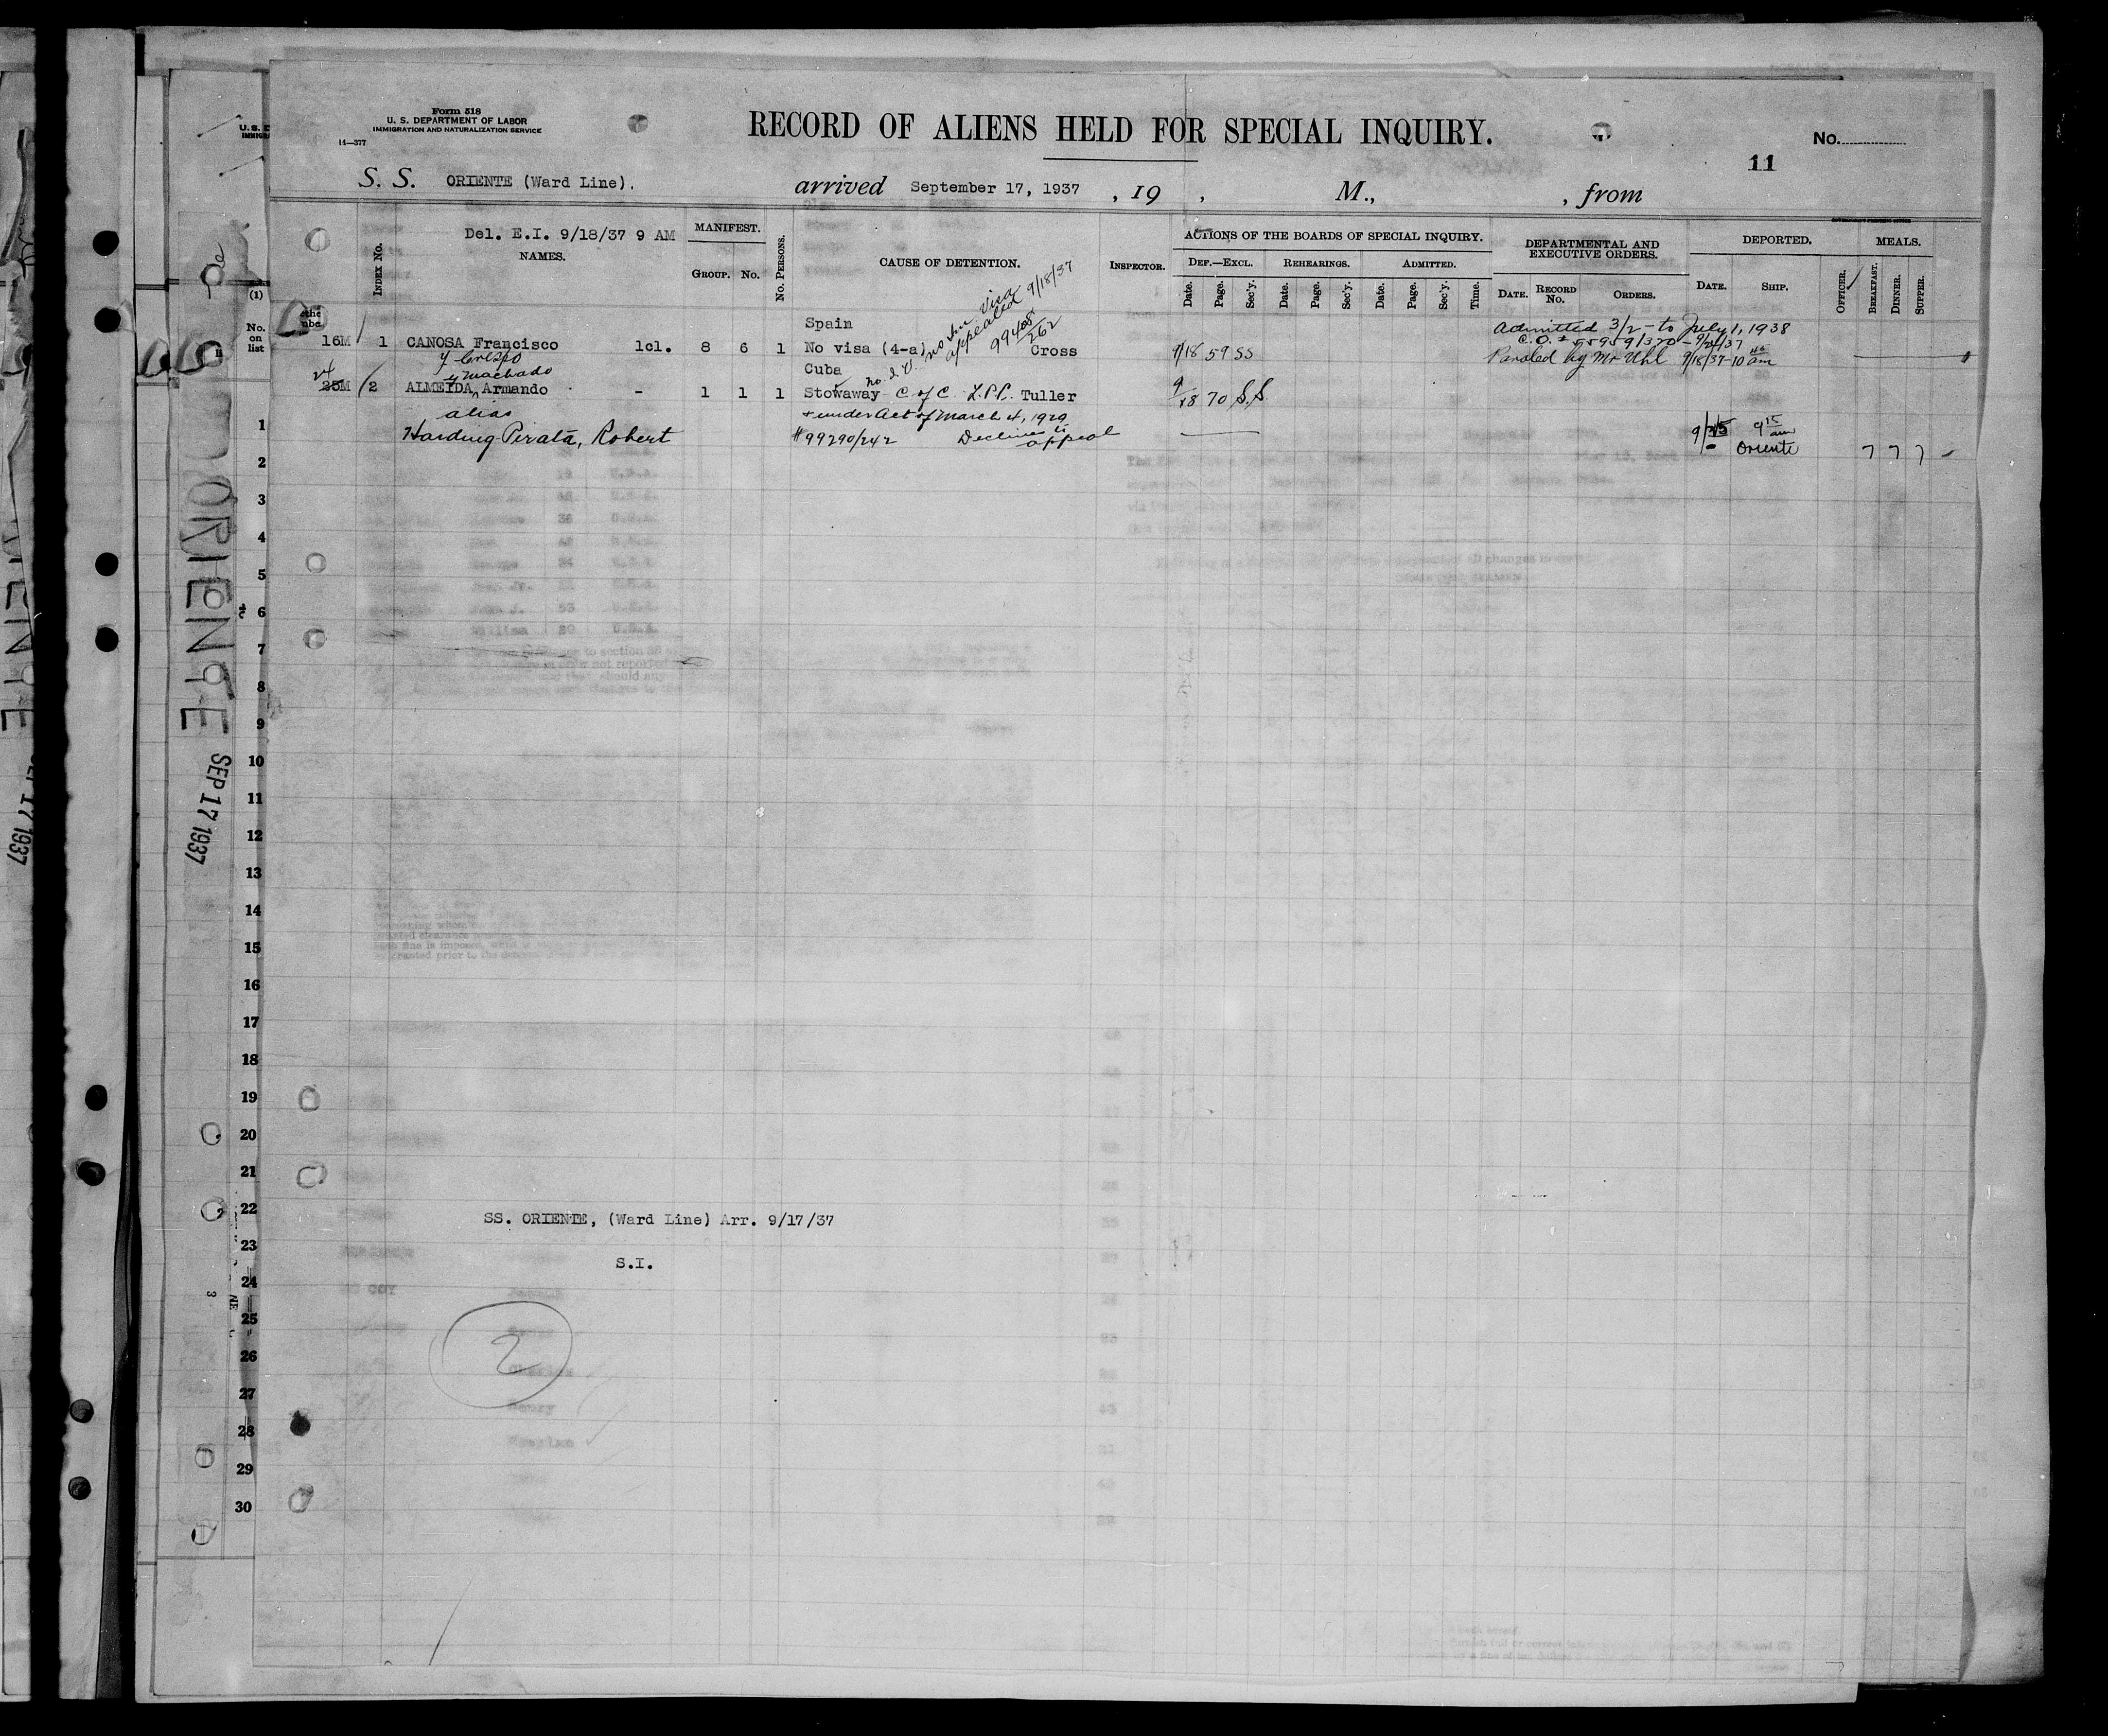 Form 518
U. S. DEPARTMENT OF LABOR
IMMIGRATION AND NATURALIZATION SERVICE
14—377
RECORD OF ALIENS HELD FOR SPECIAL INQUIRY.
No.
11
S. S. ORIENTE (Ward Line). arrived September 17, 1937 , 19 , M., , from
Del. E.I. 9/18/37 9 AM
Index No.
NAMES.
MANIFEST.
Group. No.
No. Persons.
CAUSE OF DETENTION.
Inspector.
ACTIONS OF THE BOARDS OF SPECIAL INQUIRY.
Def.—Excl. Rehearings. Admitted.
Date. Page. Sec'y. Date. Page. Sec'y. Date. Page. Sec'y. Time.
DEPARTMENTAL AND EXECUTIVE ORDERS.
Date. Record No. Orders.
DEPORTED.
Date. Ship.
Officer.
MEALS.
Breakfast. Dinner. Supper.
Spain
visa
appealed 9/18/37
99408/262
Admitted 3/2 - to July 1, 1938
C.O. # 55959/370 - 9/21/37
16M 1 CANOSA Francisco 1cl. 8 6 1 No visa (4-a) Cross 9/18 59 SS Paroled by Mr Uhl 9/18/37 - 10 am
y Crespo
Cuba
y Machado
no I.V.
24
25M 2 ALMEIDA, Armando - 1 1 1 Stowaway C of C L.P.C. Tuller 9/18 70 S.S
alias
+ under Act of March 4, 1929
Harding-Pirata, Robert
#99290/242 Declines to appeal
9/25 9 15 am
Oriente 7 7 7
(1)
No. on list
1
2
3
4
5
6
7
8
9
10
11
12
13
14
15
16
17
18
19
20
21
22
23
24
25
26
27
28
29
30
ORIENTE
SEP 17 1937
SEP 17 1937
SS. ORIENTE, (Ward Line) Arr. 9/17/37
S.I.
2